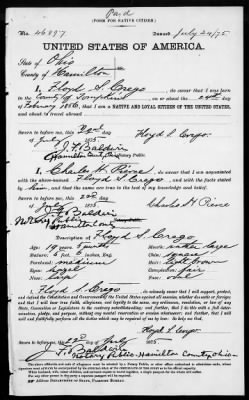 Paid
[FORM FOR NATIVE CITIZEN.]
No. 46897 Issued July 24/75
UNITED STATES OF AMERICA.
State of Ohio
County of Hamilton
I, Floyd S. Crego, do swear that I was born in the
County of on or about the 24th day
of February 1856; that I am a NATIVE AND LOYAL CITIZEN OF THE UNITED STATES,
and about to travel abroad
Sworn to before me, this 22nd day Floyd S. Crego
of July 1875
J. F. Baldwin
Hamilton County Ohio Notary Public
I, Charles H. Pierce, do swear that I am acquainted
with the above-named Floyd S. Crego, and with the facts stated
by him, and that the same are true to the best of my knowledge and belief.
Sworn to before me, this 22nd day
of July 1875 Charles H. Pierce
J. F. Baldwin
Notary Public
Hamilton Ohio
Description of Floyd S. Crego
Age: 19 years 5 months Mouth: rather large
Stature: 5 feet 6 inches, Eng. Chin:
Forehead: medium Hair: light brown
Eyes: hazel Complexion: fair
Nose: large Face:
I, Floyd S. Crego, do solemnly swear that I will support, protect,
and defend the Constitution and Government of the United States against all enemies, whether domestic or foreign;
and that I will bear true faith, allegiance, and loyalty to the same, any ordinance, resolution, or law of any State,
Convention, or Legislature to the contrary notwithstanding; and, further, that I do this with a full deter-
mination, pledge, and purpose, without any mental reservation or evasion whatsoever; and, further, that I will
well and faithfully perform all the duties which may be required of me by law: So help me God.
Floyd S. Crego
Sworn to before me, this 22nd day of July 1875
J. F. Baldwin
Notary Public Hamilton County Ohio